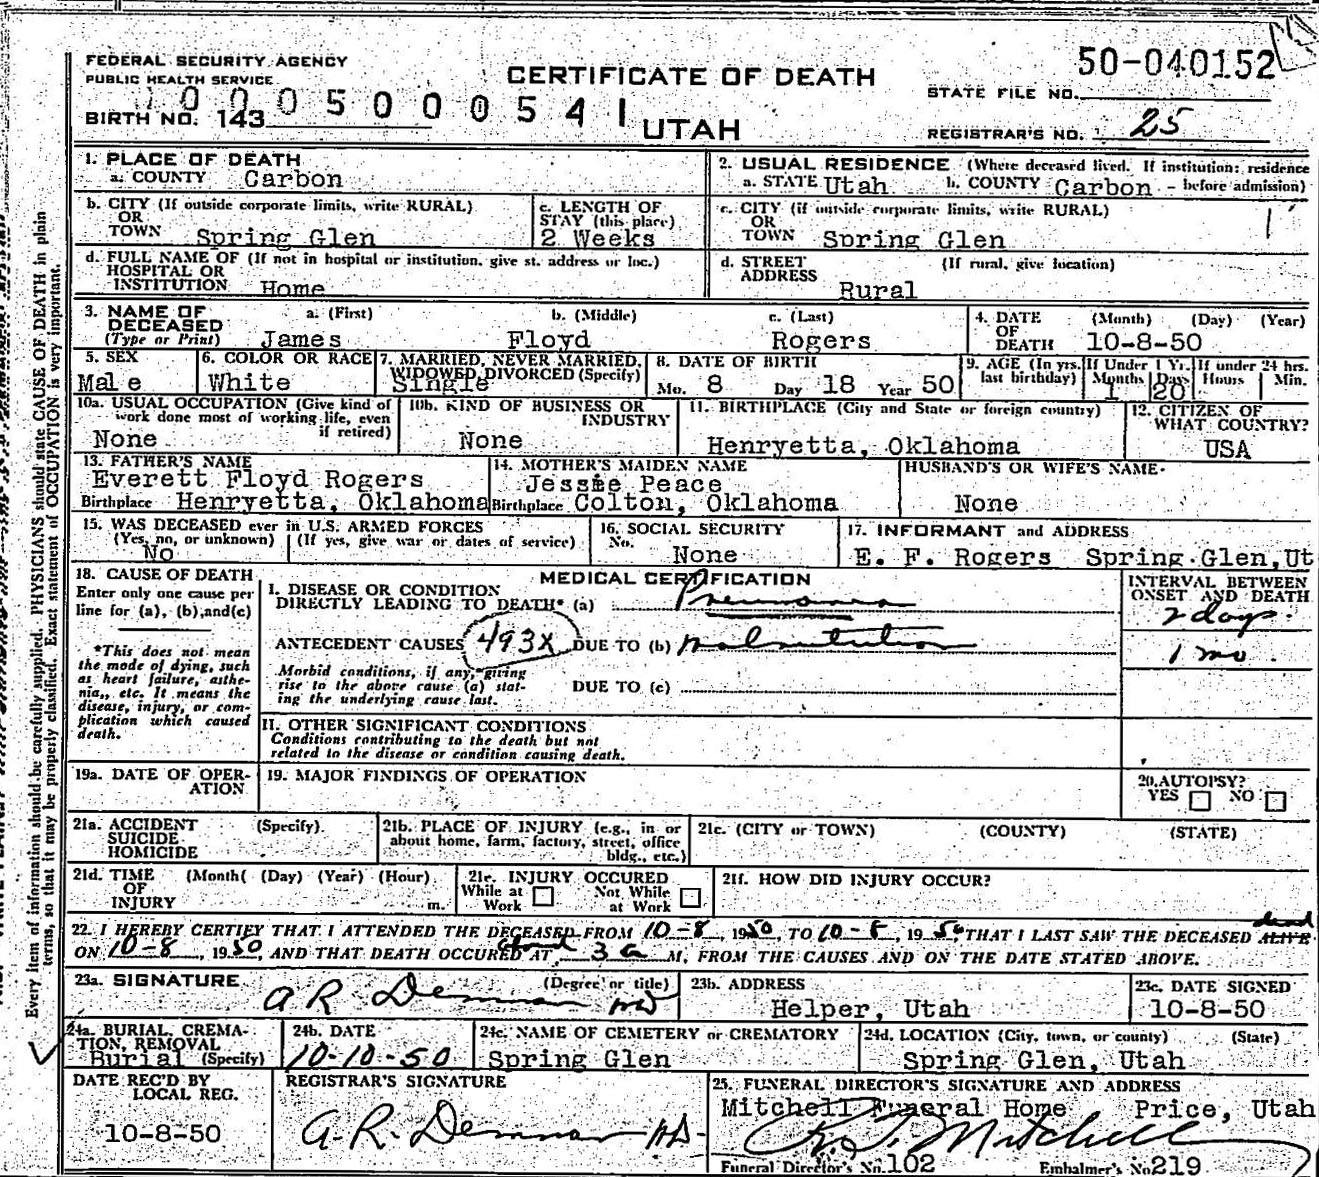 FEDERAL SECURITY AGENCY
PUBLIC HEALTH SERVICE
BIRTH NO. 143
1 0 0 0 5 0 0 0 5 4 1
CERTIFICATE OF DEATH
UTAH
50-040152
STATE FILE NO.
REGISTRAR'S NO. 25
1. PLACE OF DEATH
a. COUNTY Carbon
2. USUAL RESIDENCE (Where deceased lived. If institution: residence
a. STATE Utah b. COUNTY Carbon - before admission)
b. CITY (If outside corporate limits, write RURAL)
OR
TOWN Spring Glen
c. LENGTH OF
STAY (this place)
2 Weeks
c. CITY (if outside corporate limits, write RURAL)
OR
TOWN Spring Glen
d. FULL NAME OF (If not in hospital or institution, give st. address or loc.)
HOSPITAL OR
INSTITUTION Home
d. STREET (If rural, give location)
ADDRESS
Rural
3. NAME OF DECEASED a. (First) b. (Middle) c. (Last)
(Type or Print) James Floyd Rogers
4. DATE (Month) (Day) (Year)
OF
DEATH 10-8-50
5. SEX
Male
6. COLOR OR RACE
White
7. MARRIED, NEVER MARRIED,
WIDOWED, DIVORCED (Specify)
Single
8. DATE OF BIRTH
Mo. 8 Day 18 Year 50
9. AGE (In yrs. last birthday)
If Under 1 Yr.
Months 1 Days 20
If under 24 hrs.
Hours Min.
10a. USUAL OCCUPATION (Give kind of
work done most of working life, even
if retired)
None
10b. KIND OF BUSINESS OR
INDUSTRY
None
11. BIRTHPLACE (City and State or foreign country)
Henryetta, Oklahoma
12. CITIZEN OF
WHAT COUNTRY?
USA
13. FATHER'S NAME
Everett Floyd Rogers
Birthplace Henryetta, Oklahoma
14. MOTHER'S MAIDEN NAME
Jessie Peace
Birthplace Colton, Oklahoma
HUSBAND'S OR WIFE'S NAME
None
15. WAS DECEASED ever in U.S. ARMED FORCES
(Yes, no, or unknown) (If yes, give war or dates of service)
No
16. SOCIAL SECURITY
No.
None
17. INFORMANT and ADDRESS
E. F. Rogers Spring Glen, Ut
18. CAUSE OF DEATH
Enter only one cause per
line for (a), (b), and (c)
*This does not mean
the mode of dying, such
as heart failure, asthe-
nia, etc. It means the
disease, injury, or com-
plication which caused
death.
MEDICAL CERTIFICATION
I. DISEASE OR CONDITION
DIRECTLY LEADING TO DEATH* (a) Pneumonia
ANTECEDENT CAUSES 493X DUE TO (b) Malnutrition
Morbid conditions, if any, giving
rise to the above cause (a) stat-
ing the underlying cause last.
DUE TO (c)
INTERVAL BETWEEN
ONSET AND DEATH
2 days
1 mo.
II. OTHER SIGNIFICANT CONDITIONS
Conditions contributing to the death but not
related to the disease or condition causing death.
19a. DATE OF OPER-
ATION
19. MAJOR FINDINGS OF OPERATION
20. AUTOPSY?
YES NO
21a. ACCIDENT (Specify)
SUICIDE
HOMICIDE
21b. PLACE OF INJURY (e.g., in or
about home, farm, factory, street, office
bldg., etc.)
21c. (CITY or TOWN) (COUNTY) (STATE)
21d. TIME (Month( (Day) (Year) (Hour)
OF
INJURY m.
21e. INJURY OCCURED
While at Work Not While at Work
21f. HOW DID INJURY OCCUR?
22. I HEREBY CERTIFY THAT I ATTENDED THE DECEASED FROM 10-8, 1950, TO 10-8, 1950, THAT I LAST SAW THE DECEASED ALIVE dead
ON 10-8, 1950, AND THAT DEATH OCCURED AT about 3 a M., FROM THE CAUSES AND ON THE DATE STATED ABOVE.
23a. SIGNATURE (Degree or title)
A R Demman MD
23b. ADDRESS
Helper, Utah
23c. DATE SIGNED
10-8-50
24a. BURIAL, CREMA-
TION, REMOVAL
Burial (Specify)
24b. DATE
10-10-50
24c. NAME OF CEMETERY or CREMATORY
Spring Glen
24d. LOCATION (City, town, or county) (State)
Spring Glen, Utah
DATE REC'D BY
LOCAL REG.
10-8-50
REGISTRAR'S SIGNATURE
A. R. Demman MD.
25. FUNERAL DIRECTOR'S SIGNATURE AND ADDRESS
Mitchell Funeral Home Price, Utah
Mitchell
Funeral Director's No. 102 Embalmer's No. 219
Every item of information should be carefully supplied. PHYSICIANS should state CAUSE OF DEATH in plain
terms, so that it may be properly classified. Exact statement of OCCUPATION is very important.